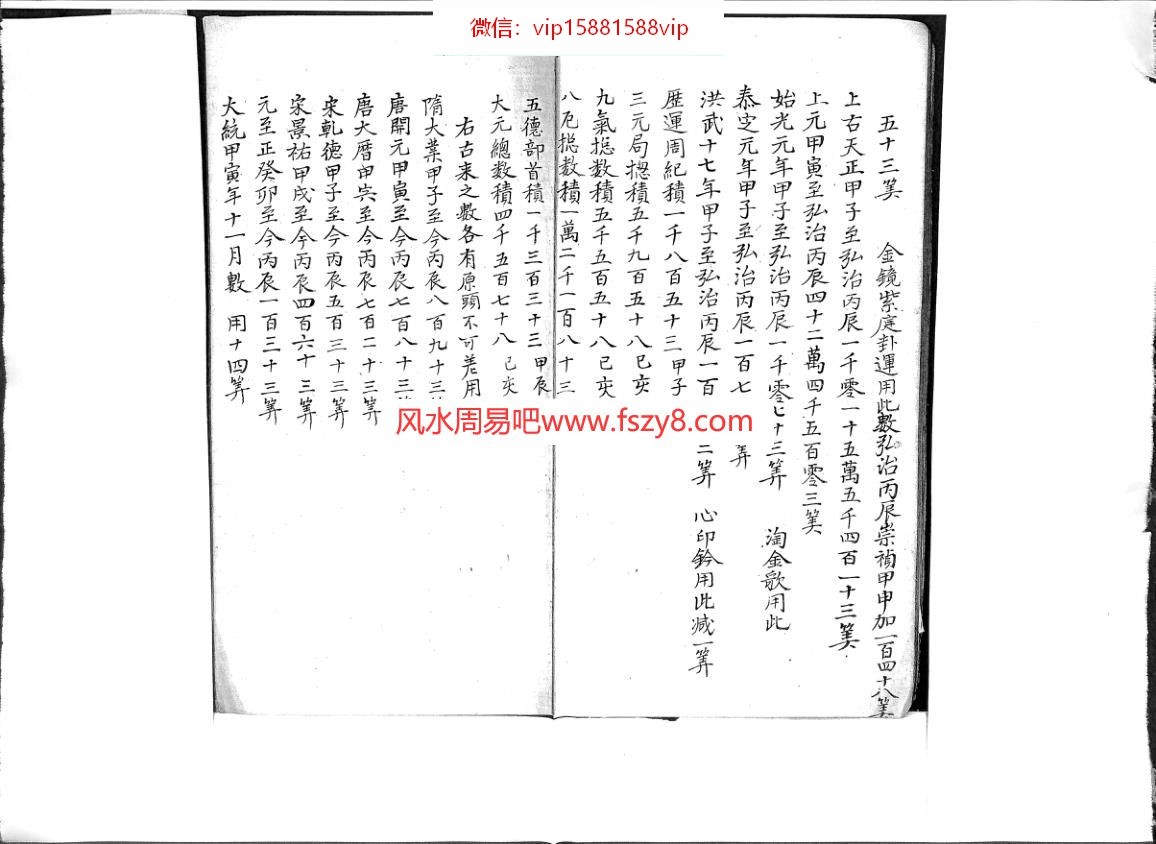 微信：vip15881588vip
五十三筭　金鏡紫庭卦運用此數弘治丙辰崇禎甲申加一百四十八筭
上古天正甲子至弘治丙辰一千零一十五萬五千四百一十三筭
上元甲寅至弘治丙辰四十二萬四千五百零三筭
始光元年甲子至弘治丙辰一千零七十三筭　淘金歌用此
泰定元年甲子至弘治丙辰一百七筭
洪武十七年甲子至弘治丙辰一百二筭　心印鈐用此減一筭
歷運周紀積一千八百五十三甲子
三元局摠積五千九百五十八己亥
九氣摠数積五千五百五十八己亥
八厄摠数積一萬二千一百八十三
五德部首積一千三百三十三甲辰
大元總数積四千五百七十八己亥
右古来之數各有原頭不可差用
隋大業甲子至今丙辰八百九十三
唐開元甲寅至今丙辰七百八十三
唐大曆甲寅至今丙辰七百二十三筭
宋乾德甲子至今丙辰五百三十三筭
宋景祐甲戌至今丙辰四百六十三筭
元至正癸卯至今丙辰一百三十三筭
大統甲寅年十一月數　用十四筭
风水周易吧www.fszy8.com